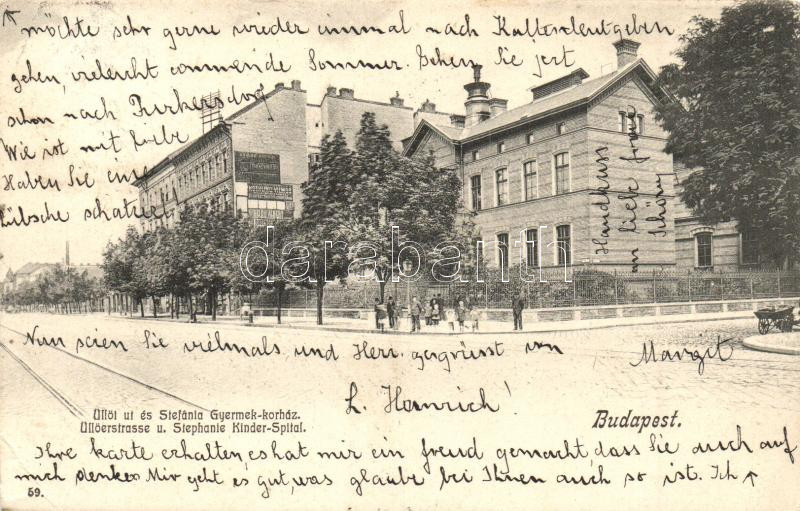 möchte sehr gerne wieder einmal nach Kaltenleutgeben
gehen, vieleicht commende Sommer. Gehen Sie jezt
schon nach Purkersdorf
Wie ist mit
Haben Sie eine
hübsche
Handkuss
an liebe frau
darabanth.com
Nun seien Sie vielmals und Herr. gegrüsst von
Margit
L. Heinrich!
Üllői ut és Stefánia Gyermek-korház.
Üllöerstrasse u. Stephanie Kinder-Spital.
Budapest.
Ihre karte erhalten, es hat mir ein freud gemacht, dass Sie auch auf
mich denken. Mir geht es gut, was glaube bei Ihnen auch so ist. Ich
59.